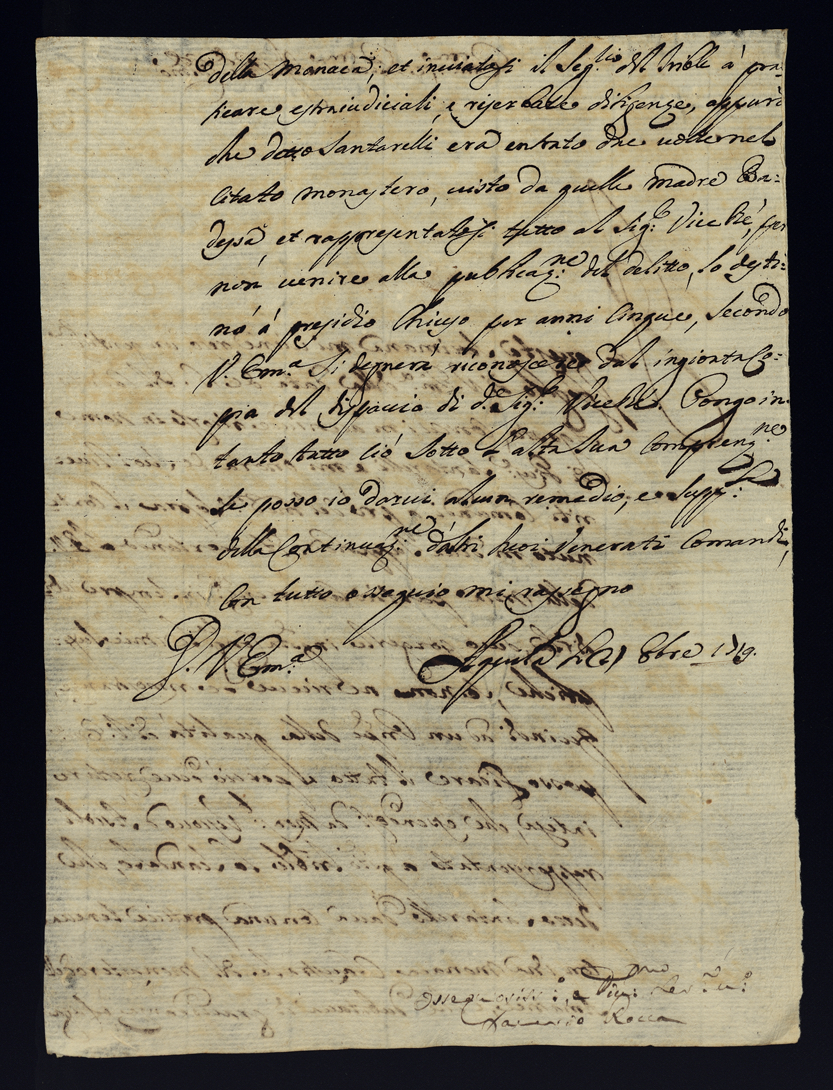 della monaca, et inviatosi il Seg.rio del Trible à pra-
ticare estraiudiciali, e riserbate diligenze, appurò
che detto Santarelli era entrato due volte nel
citato monastero, visto da quella madre Ba-
dessa, et rappresentatosi tutto al Sig.r Vice Ré, per
non venire alla publicaz.ne del delitto, lo desti-
nó á presidio chiuso per anni cinque, secondo
V. Em.a si degnerà riconoscere dal ingionta co-
pia del dispaccio di d.o Sig.r Vice Ré. Pongo in-
tanto tutto ciò sotto l'alta sua comprenz.ne
se posso io darvi alcun remedio, e supp.
della continuaz.ne dalti suoi venerati comandi,
con tutto ossequio mi rassegno
D. V. Em.a
Aquila li 8bre 1719.
Devmo
Rocca